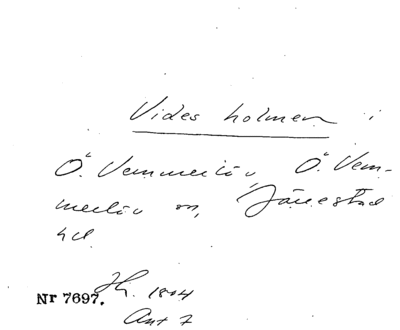 Vides holmen i
Ö. Vemmerlöv, Ö. Vem-
merlöv sn, Järrestad
hd.
Nr 7697. 1804
Ant 7